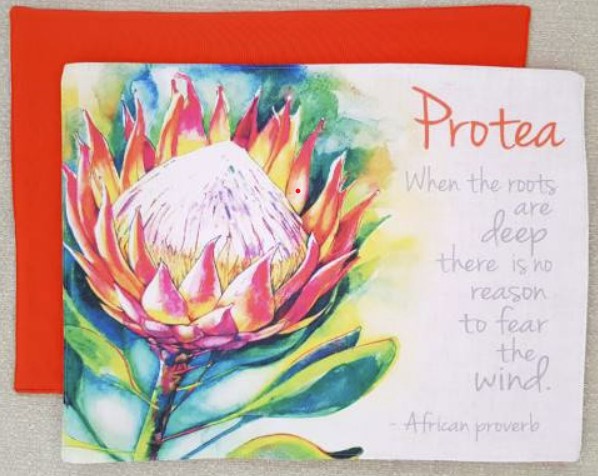 Protea
When the roots
are
deep
there is no
reason
to fear
the
wind.
- African proverb